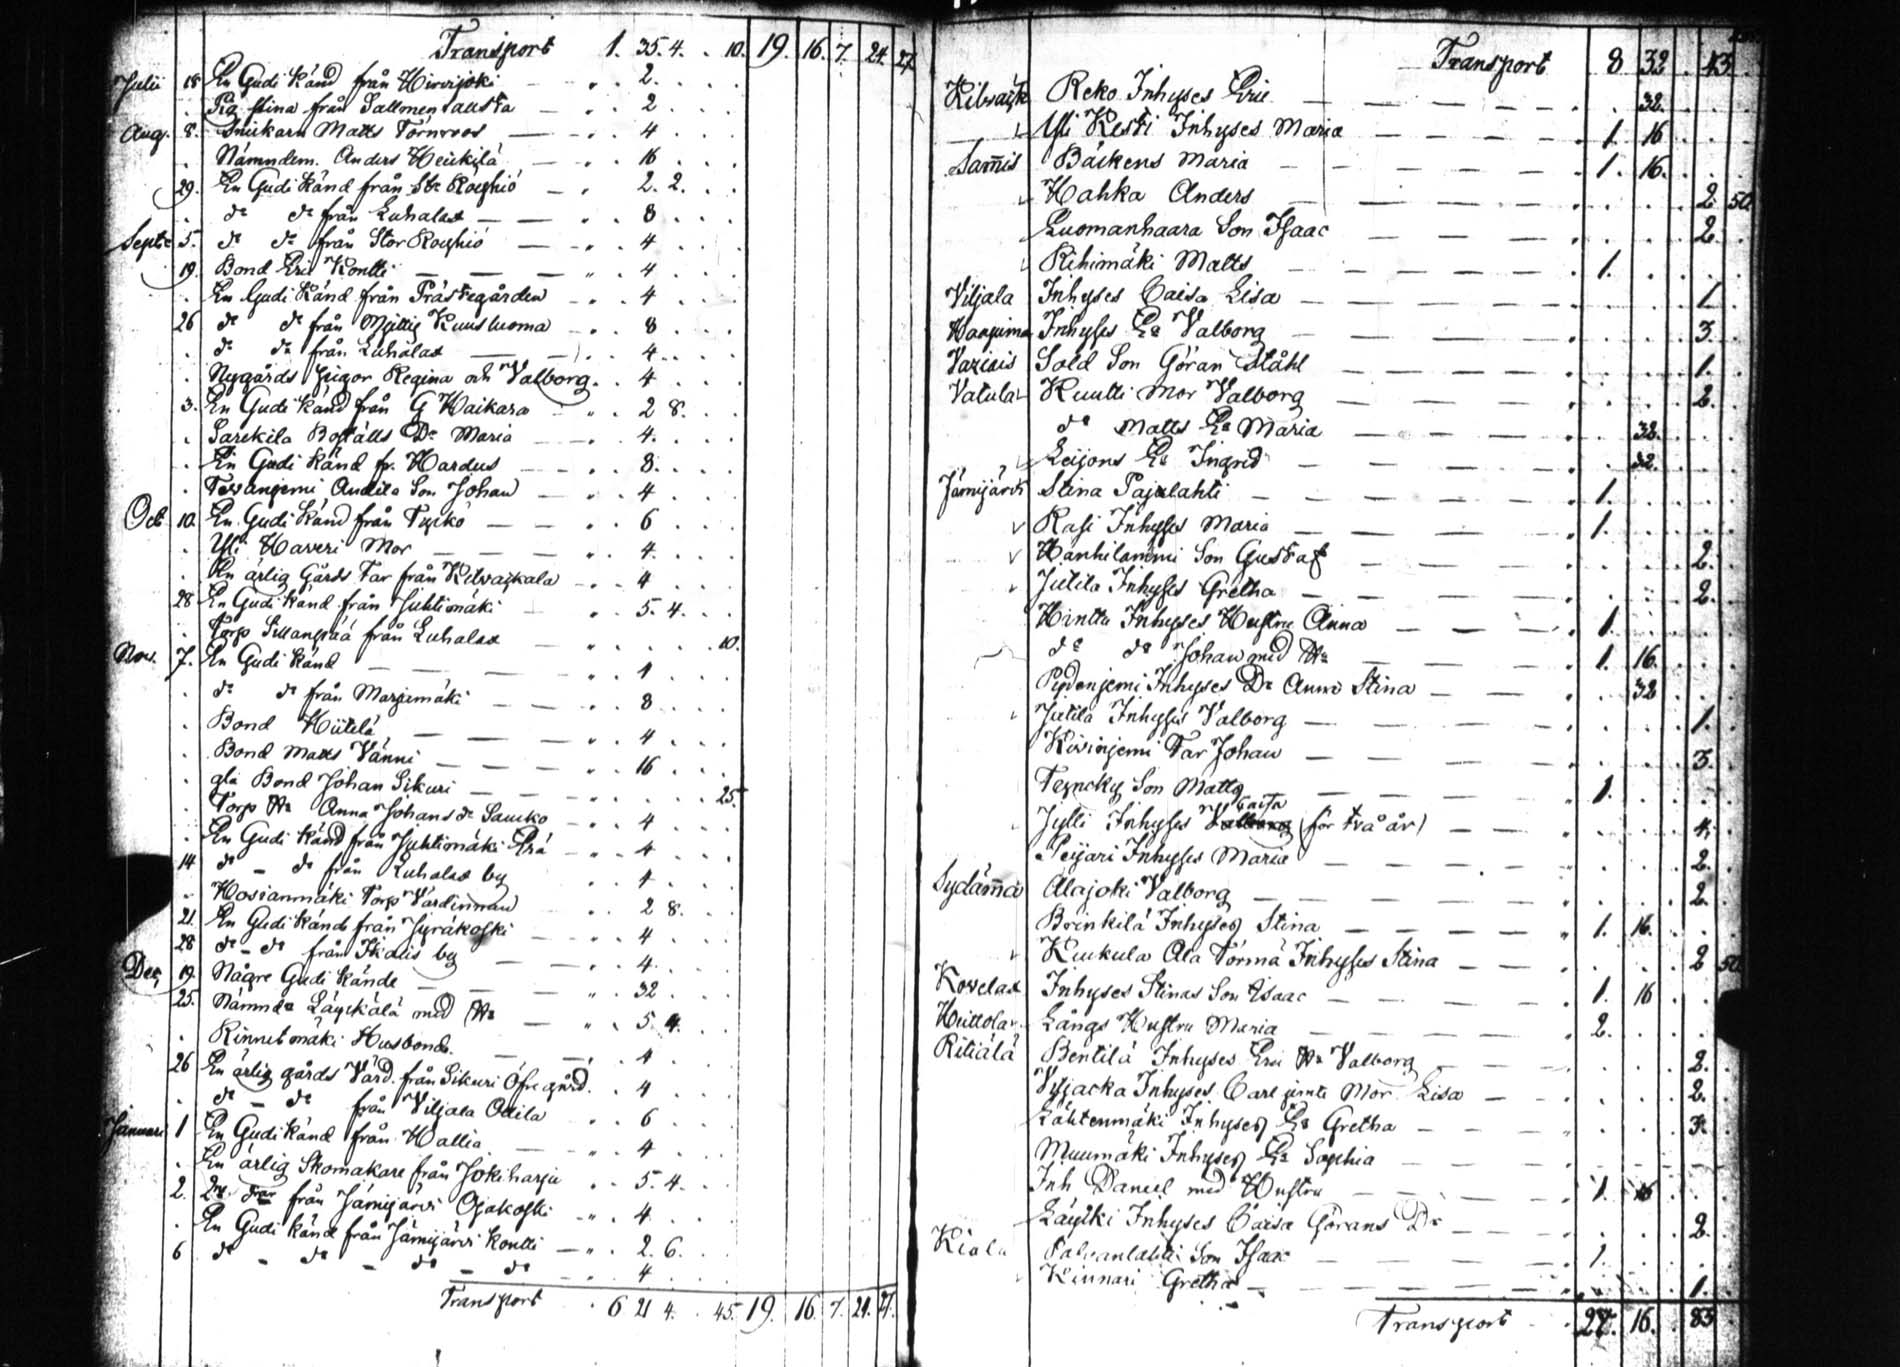 Transport 1. 35. 4. . 10. 19. 16. 7. 24. 27.
Julii 18 En Gudi känd från Hirvijoki 2.
Pig Stina från 2
Aug. 8. Snickarn Matts Törnroos 4.
Nämndem. Anders Heickilä 16
29. En Gudi känd från St. Röyhiö 2. 2.
do do från Luhalax 8
Septr 5. do do från Stor Röyhiö 4
19. Bond Eric Kontti 4
En Gudi känd från Prästegården 4
26 do do från Kuusluoma 8
do do från Luhalax 4
Nygårds Pigor Regina och Valborg 4
3. En Gudi känd från G Haikara 2 8.
Sarckila Boställs Dr Maria 4.
En Gudi känd fr. Hardus 8.
Anttila Son Johan 4
Oct 10. En Gudi känd från Tyrkö 6
Yli Haveri Mor 4.
En ärlig Gårds Far från Kilvackala 4
28 En Gudi känd från Juhtimäki 5. 4.
Torp från Luhalax 10.
Nov. 7. En Gudi känd 1
do do från Marjumäki 8
Bond Hiitelä 4
Bond Matts Vänni 16
gla Bond Johan Sikuri 25.
Torp Hu Anna Johans dr 4
En Gudi känd från Juhtimäki 4
14 do do från Luhalax by 4
Torp Värdinnan 2 8.
21. En Gudi känd från Jyräkoski 4
28 do do från Ikalis by 4
Dec 19. Några Gudi kände 32
25. Nämnd: med Hu 5 4.
Rinnetmäki Husbond 4
26 En ärlig gårds Värd från Sikuri Öfre gård. 4
do do från Viljala Ottila 6
Januari 1 En Gudi känd från Hallia 4
En ärlig Skomakare från Jokiharju 5. 4.
2. från Jämijärvi Ojakoski 4
En Gudi känd från Jämijärvi Kontti 2. 6.
6 do do do do 4
Transport 6 21 4. 45. 19. 16. 7. 24. 27.
Transport 8 32 43
Reko Inhyses Eric 32
Yli Kesti Inhyses Maria 1. 16
Sam̄is Bäckens Maria 1. 16.
Hahka Anders 2. 50
Luomanhaara Son Isaac 2.
Rihimäki Matts 1.
Viljala Inhyses Caisa Lisa 1
Inhyses Ea Valborg 3.
Sold Son Göran Ståhl 1.
Vatula Kuutti Mor Valborg 2.
do Matts Ea Maria 32.
Leijons Ea Ingrid 32.
Jämijärvi Stina Pajulahti 1.
Rasi Inhyses Maria 1.
Hanhilammi Son Gustaf 2.
Jutila Inhyses Gretha 2.
Hinttu Inhyses Hustru Anna 1.
do do Johan med Hu 1. 16.
Inhyses Dr Anna Stina 32
Jutila Inhyses Valborg 1.
Kivinjemi Far Johan 3.
Son Matts 1.
Caisa
Jylli Inhyses Valborg (för två år) 4.
Peijari Inhyses Maria 2.
Sydäm̄a Alajoki Valborg 2.
Brinkilä Inhyses Stina 1. 16.
Kuukula Ala Törmä Inhyses Stina 2 50
Kovelax Inhyses Stinas Son Isaac 1. 16
Långs Hustru Maria 2.
Ritiälä Bentilä Inhyses Eric Hu Valborg 2.
Inhyses Carl jemte Mor Lisa 2.
Lähtenmäki Inhyses Ea Gretha 3.
Muumäki Inhyses Ea Sophia
Inh Daniel med Hustru 1. 16
Inhyses Caisa Görans Dr 2.
Son Isaac 1.
Kinnari Gretha 1.
Transport 27. 16. 83